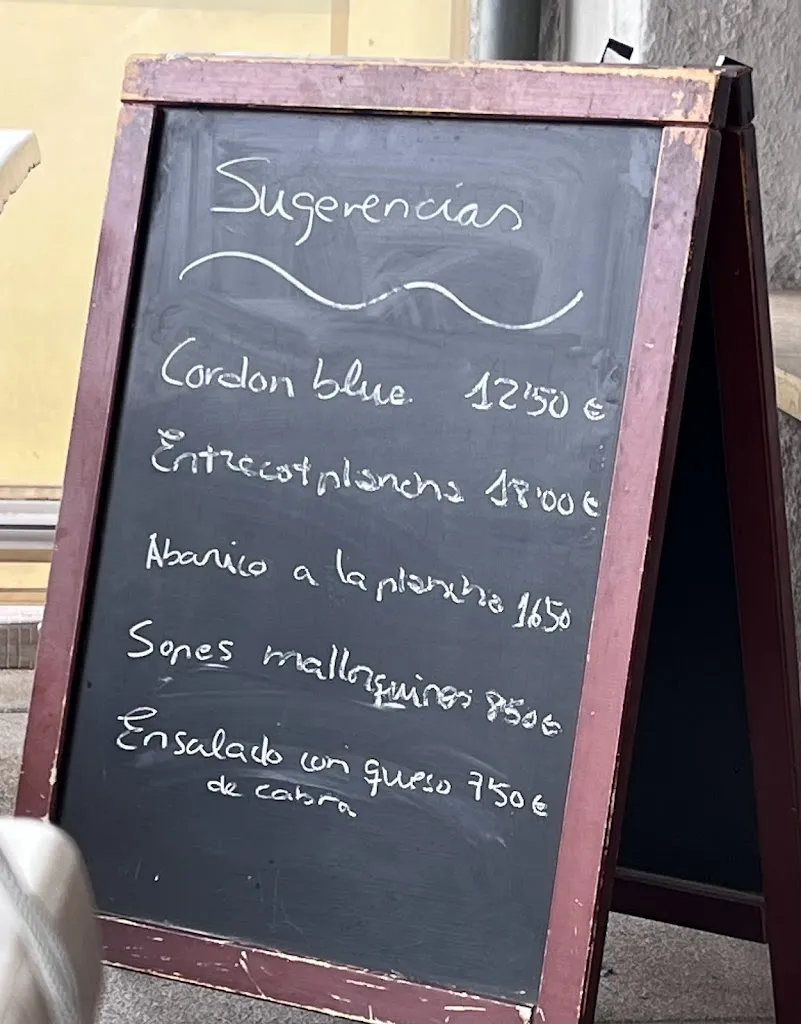 Sugerencias
Cordon blue. 12'50 €
Entrecot plancha 18'00 €
Abanico a la plancha 16'50
Sopes mallorquines 8'50 €
Ensalada con queso 7'50 €
de cabra